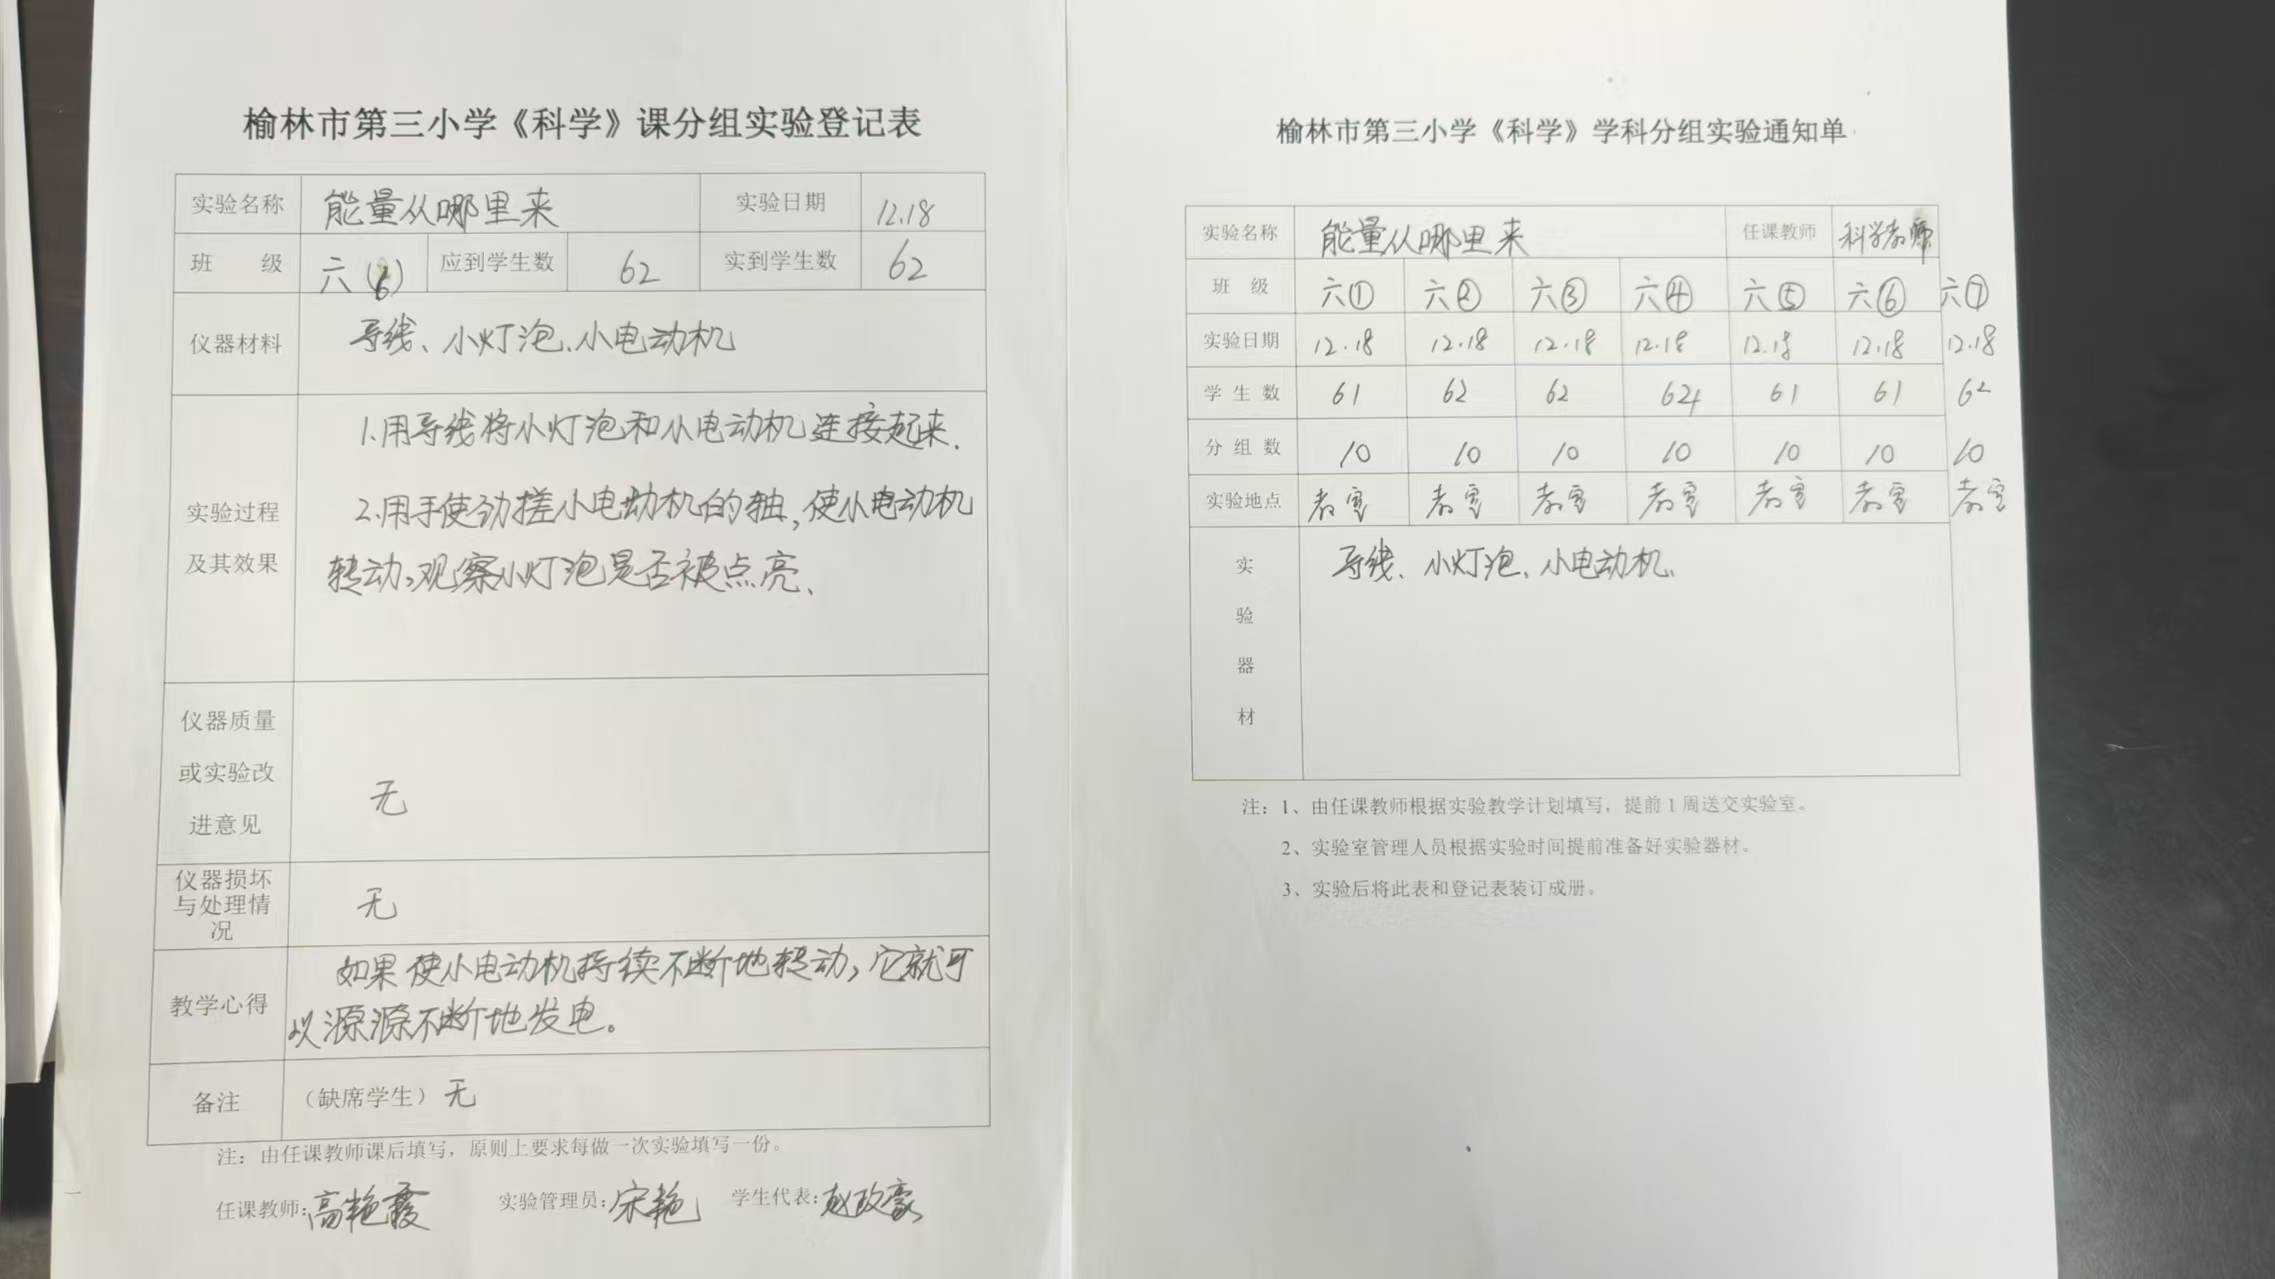 榆林市第三小学《科学》课分组实验登记表
实验名称 能量从哪里来 实验日期 12.18
班 级 六(6) 应到学生数 62 实到学生数 62
仪器材料 导线、小灯泡、小电动机
实验过程
及其效果
1.用导线将小灯泡和小电动机连接起来.
2.用手使劲搓小电动机的轴,使小电动机
转动,观察小灯泡是否被点亮、
仪器质量
或实验改
进意见
无
仪器损坏
与处理情
况
无
教学心得
如果使小电动机持续不断地转动,它就可
以源源不断地发电。
备注 （缺席学生）无
注：由任课教师课后填写，原则上要求每做一次实验填写一份。
任课教师:高艳霞 实验管理员:宋艳 学生代表:赵政豪
榆林市第三小学《科学》学科分组实验通知单
实验名称 能量从哪里来 任课教师 科学教师
班 级 六① 六② 六③ 六④ 六⑤ 六⑥ 六⑦
实验日期 12.18 12.18 12.18 12.18 12.18 12.18 12.18
学生数 61 62 62 61 61 62
分组数 10 10 10 10 10 10 10
实验地点 教室 教室 教室 教室 教室 教室 教室
实
验
器
材
导线、小灯泡、小电动机、
注：1、由任课教师根据实验教学计划填写，提前1周送交实验室。
2、实验室管理人员根据实验时间提前准备好实验器材。
3、实验后将此表和登记表装订成册。